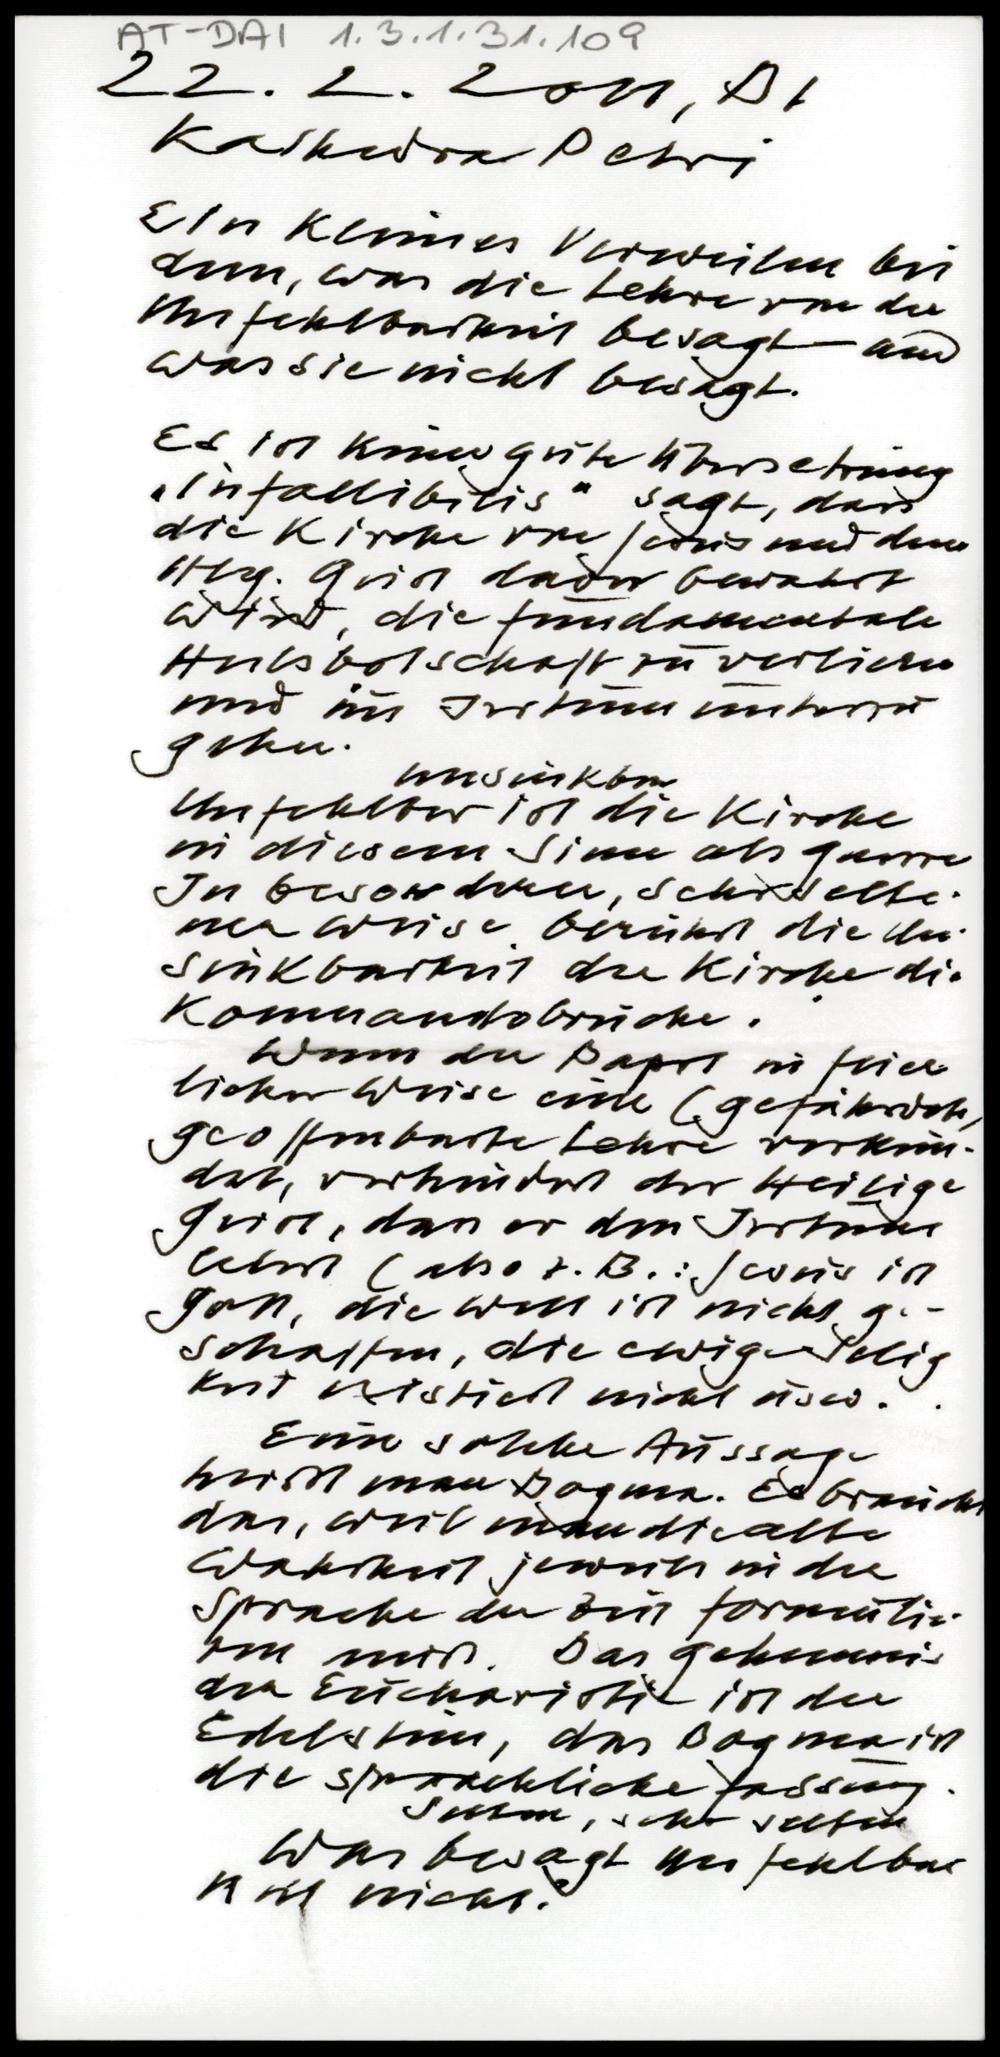 AT-DAI 1.3.1.31.109
22. 2. 2011, Di
Kathedra Petri
Ein kleines Verweilen bei
dem, was die Lehre von der
Unfehlbarkeit besagt – und
was sie nicht besagt.
Es ist keine gute Übersetzung
„infallibilis" sagt, dass
die Kirche von Jesus und dem
Hlg. Geist davor bewahrt
wird, die fundamentale
Heilsbotschaft zu verlieren
und im Irrtum unterzu
gehen.
unsinkbar
Unfehlbar ist die Kirche
in diesem Sinne als ganze
In besonderer, sehr selte-
ner Weise berührt die Un-
sinkbarkeit der Kirche die
Kommandobrücke.
Wenn der Papst in feier
licher Weise eine (gefährdete,
geoffenbarte Lehre verkün-
det, verhindert der Heilige
Geist, dass er den Irrtum
lehrt (also z. B.: Jesus ist
Gott, die Welt ist nicht ge-
schaffen, die ewige Selig
keit existiert nicht usw.
Eine solche Aussage
heißt man Dogma. Es braucht
das, weil man die alte
Wahrheit jeweils in der
Sprache der Zeit formulie-
ren muss. Das Geheimnis
der Eucharistie ist der
Edelstein, das Dogma ist
die sprachliche Fassung.
selten, sehr selten
Was besagt Unfehlbar
keit nicht?